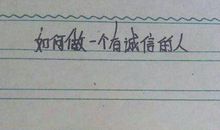 如何做一个有诚信的人